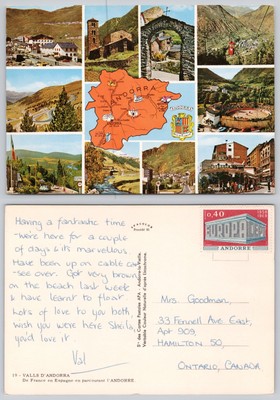 ANDORRA
Having a fantastic time
we're here for a couple
of days & its marvellous
Have been up on cable car
- see over. Got very brown
on the beach last week
& have learnt to float
Lots of love to you both,
wish you were here Sheila
you'd love it
Val
19 - VALLS D'ANDORRA
De France en Espagne ou par-contre! ANDORRE.
0,40
EUROPA
CEPT
ANDORRE
Mrs. Goodman,
33 Fennell Ave. East,
Apt 909,
HAMILTON 50,
ONTARIO, CANADA